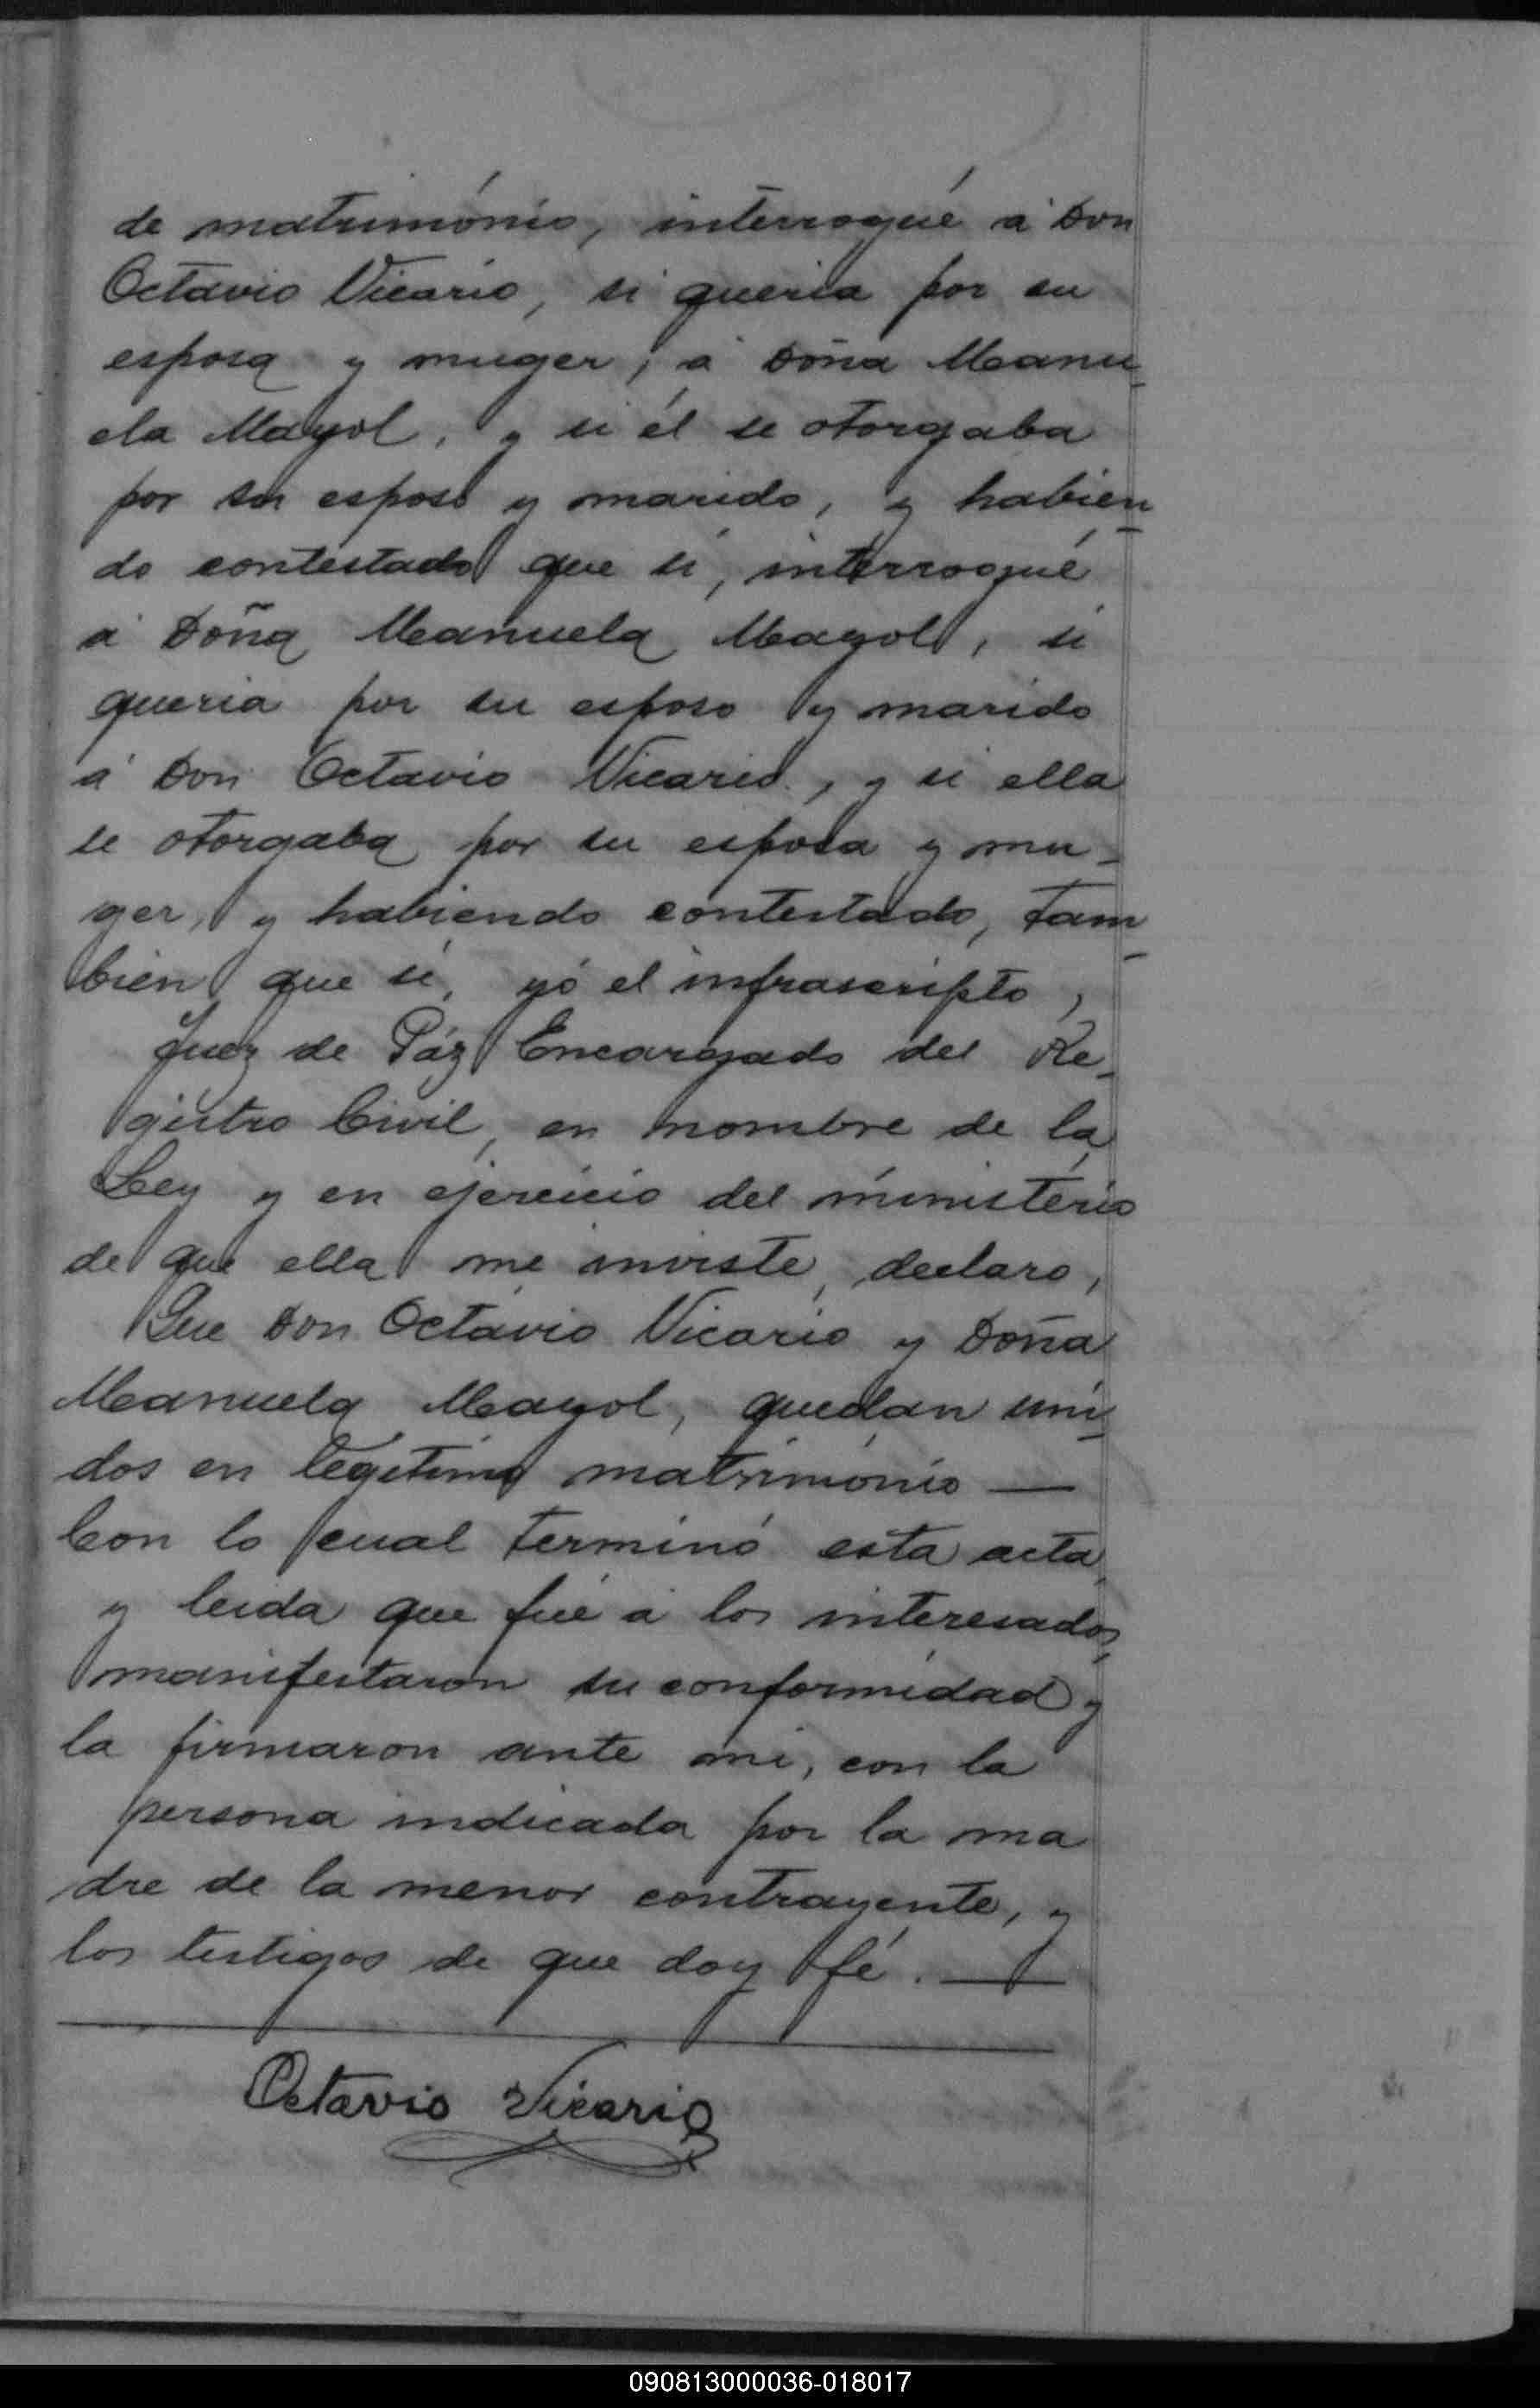 de matrimónio, interrogué á Don
Octavio Vicario, si queria por su
esposa y muger, á Doña Manu-
ela Mayol, y si él se otorgaba
por su esposo y marido, y habien-
do contestado que si, interrogué
á Doña Manuela Mayol, si
queria por su esposo y marido
á Don Octavio Vicario, y si ella
se otorgaba por su esposa y mu-
ger, y habiendo contestado, tam-
bien que si, yó el infrascripto,
Juez de Páz Encargado del Re-
gistro Civil, en nombre de la
Ley y en ejercicio del ministério
de que ella me inviste, declaro,
Que Don Octavio Vicario y Doña
Manuela Mayol, quedan uni-
dos en legítimo matrimónio —
Con lo cual terminó esta acta,
y leida que fué á los interesados,
manifestaron su conformidad y
la firmaron ante mi, con la
persona indicada por la ma
dre de la menor contrayente, y
los testigos de que doy fé. —
Octavio Vicario
090813000036-018017